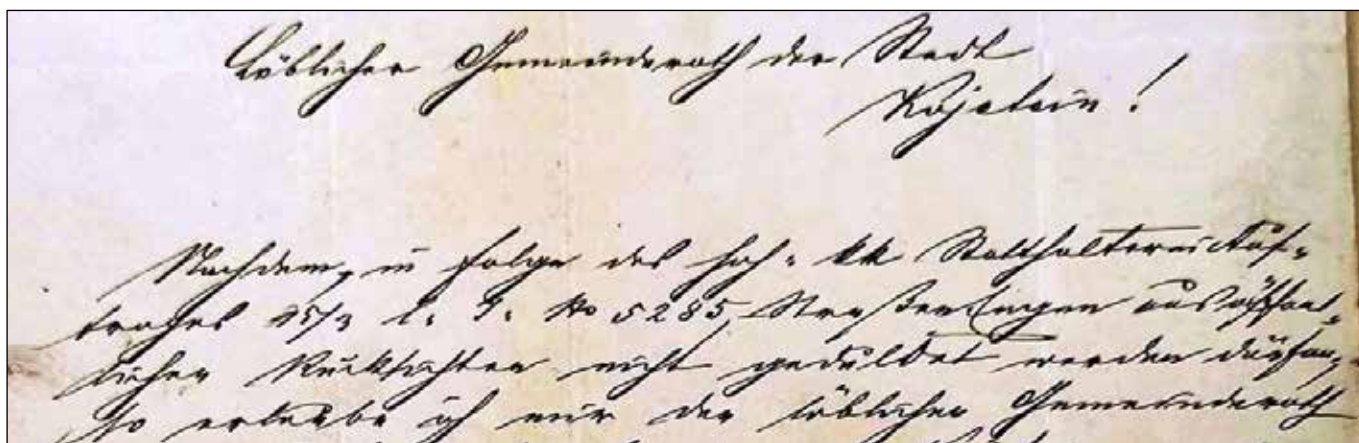 Löblicher Gemeinderath der Stadt
Kojetein!
Nachdem, in Folge des hoh. kk Statthalterei Auf-
trages 25/3 l. J. No 5285, aus öffent-
lichen Rücksichten nicht geduldet werden dürfen,
so erlaube ich mir den löblichen Gemeinderath